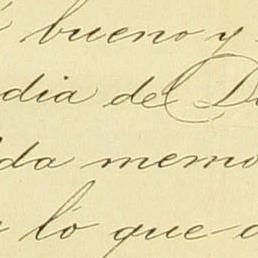 bueno y
dia del D
da memo
lo que